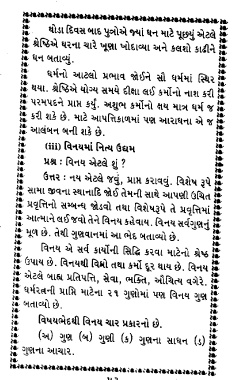 થોડા દિવસ બાદ પુત્રોએ જ્યાં ધન માટે પૂછ્યું એટલે
શ્રેષ્ઠિએ ઘરના ચારે ખૂણા ખોદાવ્યા અને કલશો કાઢીને
ધન બતાવ્યું.
ધર્મનો આટલો પ્રભાવ જોઈને સૌ ધર્મમાં સ્થિર
થયા. શ્રેષ્ઠિએ યોગ્ય સમયે દીક્ષા લઈ કર્મોનો નાશ કરી
પરમપદને પ્રાપ્ત કર્યું. અશુભ કર્મોનો ક્ષય માત્ર ધર્મ જ
કરી શકે છે. માટે આપત્તિકાળમાં પણ આરાધના એ જ
આલંબન બની શકે છે.
(iii) વિનયમાં નિત્ય ઉદ્યમ
પ્રશ્ન : વિનય એટલે શું ?
ઉત્તર : નય એટલે જવું, પ્રાપ્ત કરાવવું. વિશેષ રૂપે
સામા જીવના સ્થાનાદિ જોઈ તેમની સાથે આપણી ઉચિત
પ્રવૃત્તિનો સમ્બન્ધ જોડવો તથા વિશેષરૂપે તે પ્રવૃત્તિમાં
આત્માને લઈ જવો તેને વિનય કહેવાય. વિનય સર્વગુણનું
મૂળ છે. તેથી ગુણવાનમાં આ ભેદ બતાવ્યો છે.
વિનય એ સર્વ કાર્યોની સિદ્ધિ કરવા માટેનો શ્રેષ્ઠ
ઉપાય છે. વિનયથી વિઘ્નો તથા કર્મો દૂર થાય છે. વિનય
એટલે બાહ્ય પ્રતિપત્તિ, સેવા, ભક્તિ, ઔચિત્ય વગેરે.
ધર્મરત્નની પ્રાપ્તિ માટેના ૨૧ ગુણોમાં પણ વિનય ગુણ
બતાવ્યો છે.
વિષયભેદથી વિનય ચાર પ્રકારનો છે.
(અ) ગુણ (બ) ગુણી (ક) ગુણના સાધન (ડ)
ગુણના આચાર.